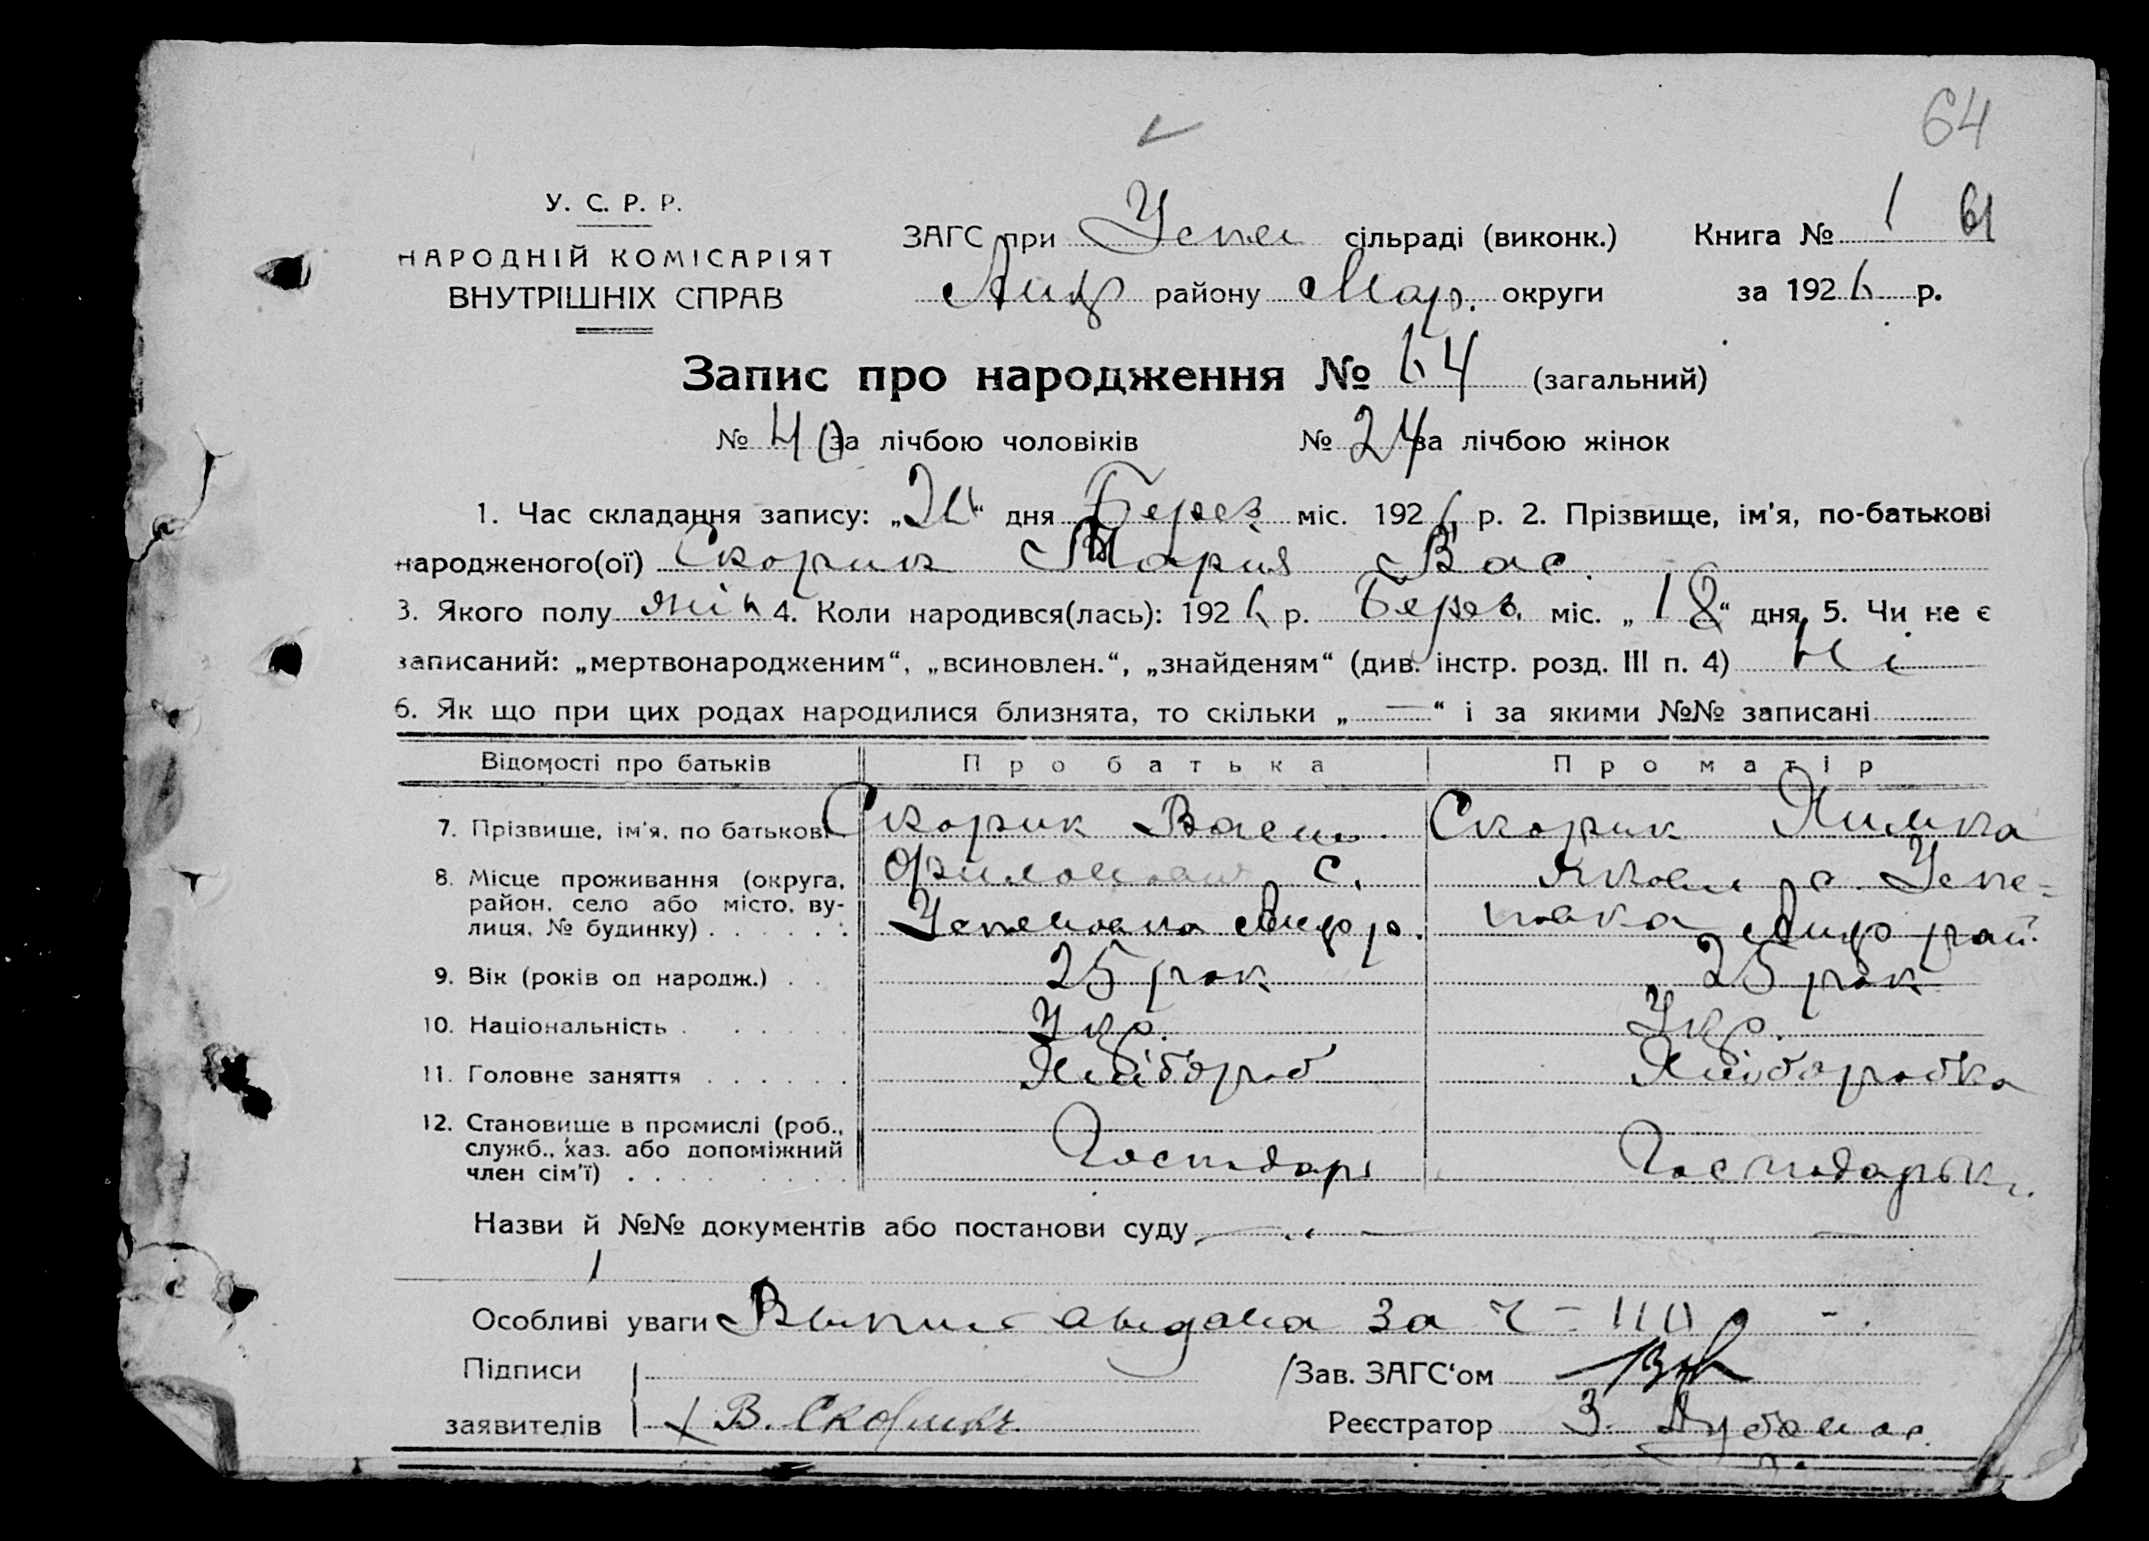 64
У. С. Р. Р.
НАРОДНІЙ КОМІСАРІЯТ
ВНУТРІШНІХ СПРАВ
ЗАГС при Успен сільраді (виконк.) Книга № 1 61
Андр району Мар. округи за 1926 р.
Запис про народження № 64 (загальний)
№ 40 за лічбою чоловіків № 24 за лічбою жінок
1. Час складання запису: „ “ дня Берез міс. 1926 р. 2. Прізвище, ім'я, по-батькові
народженого(ої) Скорик Марія Вас.
3. Якого полу жін 4. Коли народився(лась): 1926 р. Берез. міс. „18“ дня 5. Чи не є
записаний: „мертвонародженим“, „всиновлен.“, „знайденям“ (див. інстр. розд. III п. 4) Ні
6. Як що при цих родах народилися близнята, то скільки „—“ і за якими №№ записані
Відомості про батьків Про батька Про матір
7. Прізвище, ім'я, по батькові Скорик Васил. Скорик
8. Місце проживання (округа, район, село або місто, вулиця, № будинку) с. Успеновка Андр р. с. Успеновка Андр рай.
9. Вік (років од народж.) 25 рок 25 рок
10. Національність Укр. Укр.
11. Головне заняття Хліборob Хліборобка
12. Становище в промислі (роб., служб., хаз. або допоміжний член сім'ї) Господарь Господарьк.
Назви й №№ документів або постанови суду
Особливі уваги выдана за
Підписи Зав. ЗАГС'ом
заявителів В. Скорик Реєстратор З.